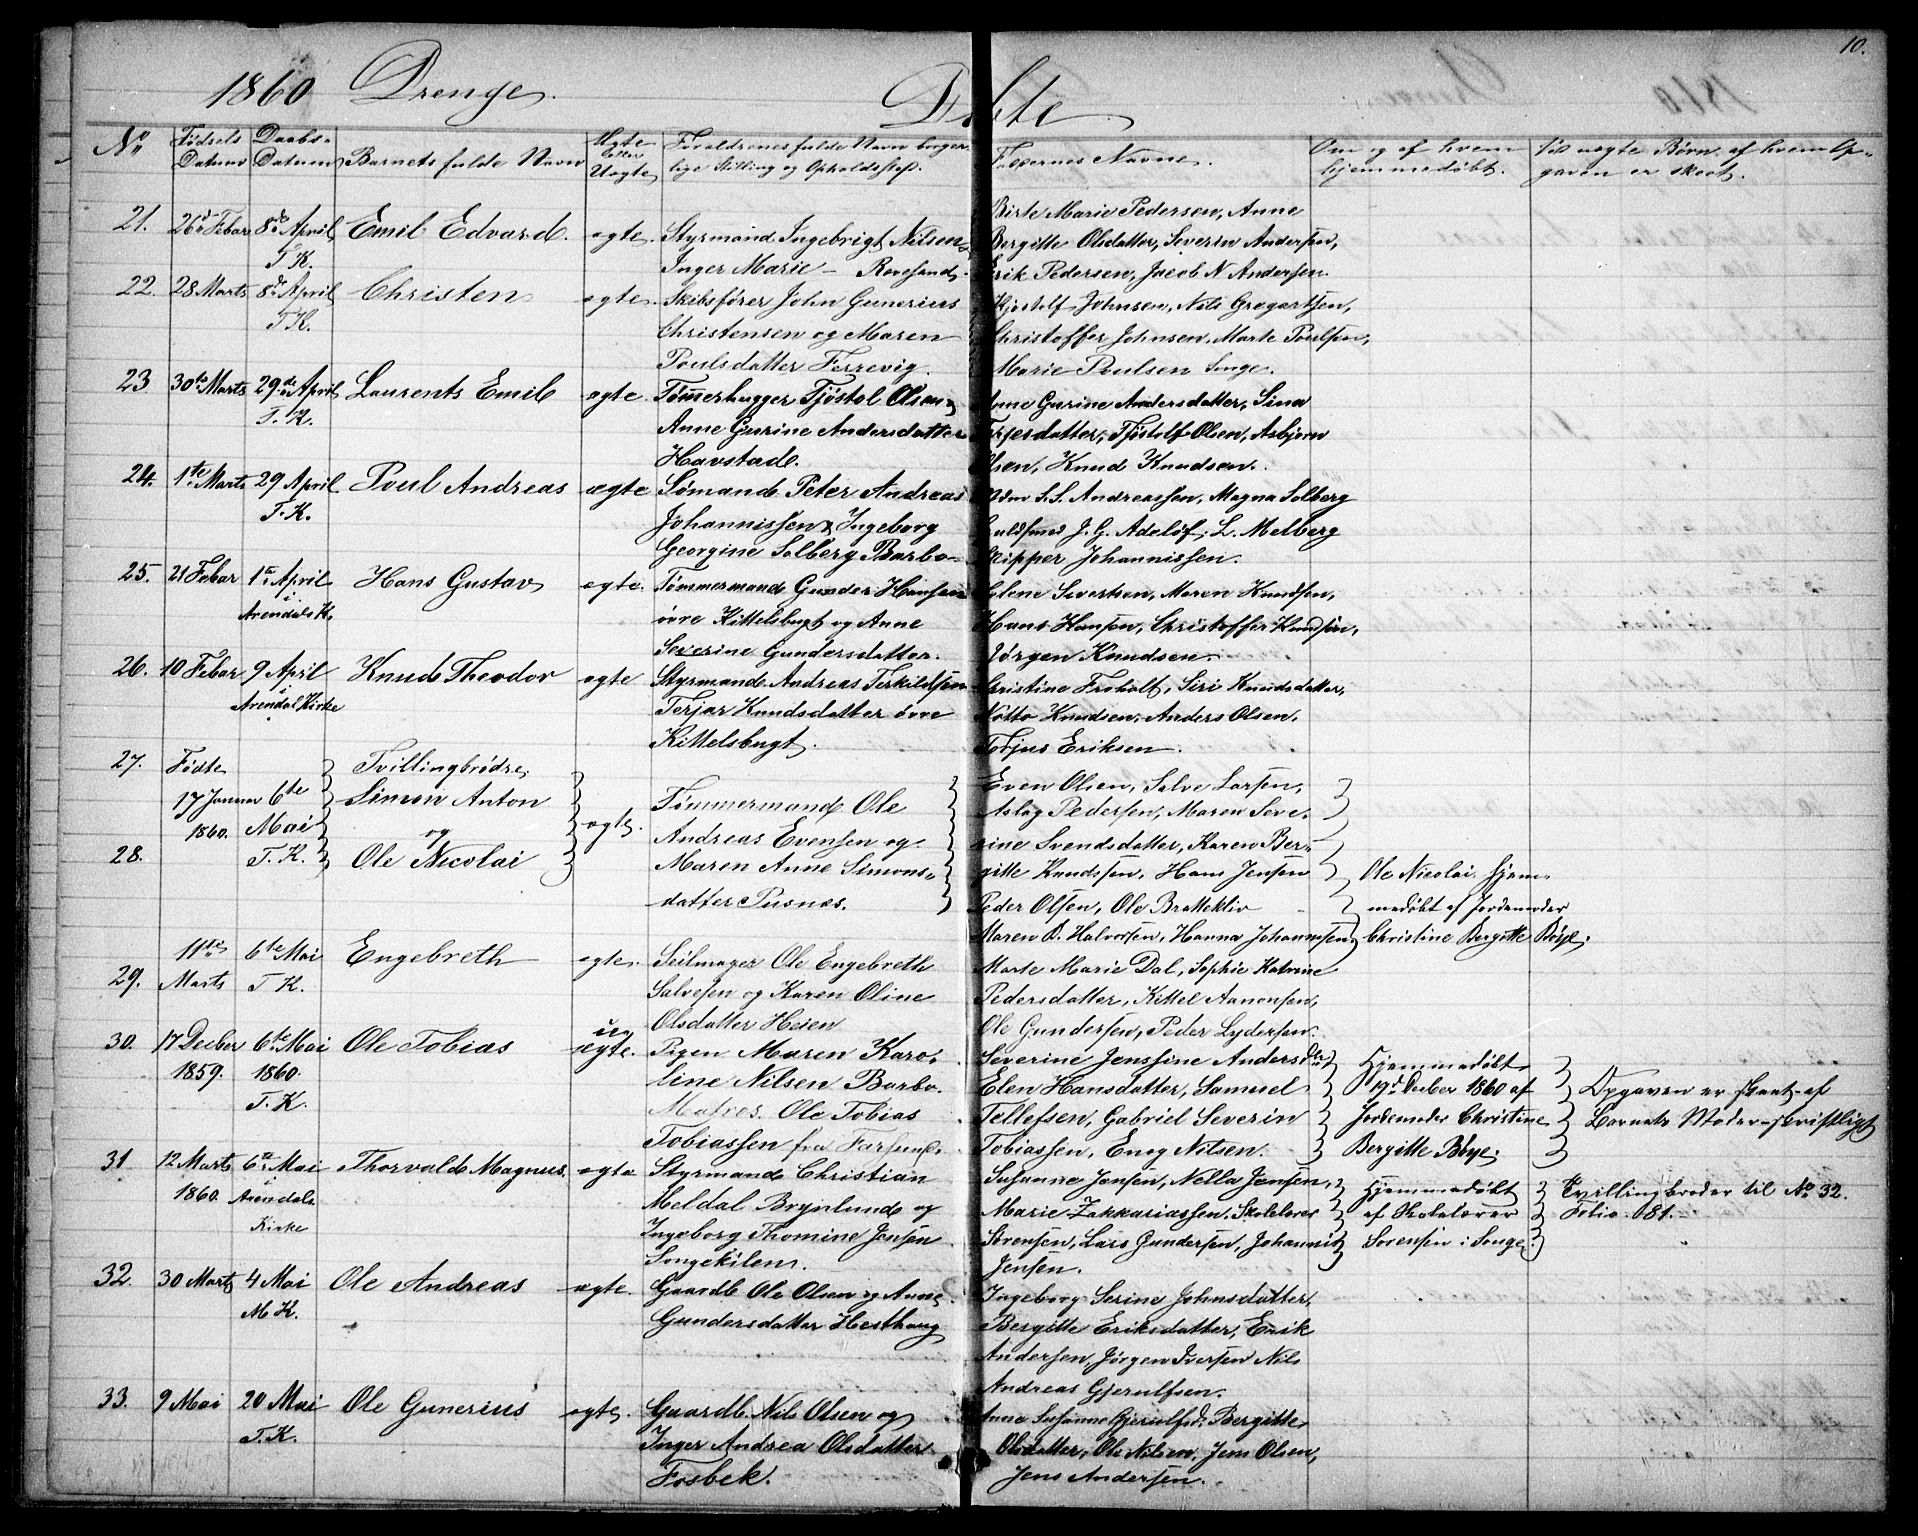 10.
1860 Drenge. Døbte.
No Fødsels Datum Daabs-Datum Barnets fulde Navn Ægte eller Uægte Forældrenes fulde Navn borger-lige Stilling og Opholdssted. Faddernes Navne. Om og af hvem hjemmedøbt. Ved uægte Børn, af hvem Op-gaven er skeet.
21. 26de Febar 8de April Emil Edvard. ægte. Styrmand Ingebrigt Nilsen
T K. Inger Marie - Revesand.
Birte Marie Pedersen, Anne
Bergitte Olsdatter, Severin Andersen,
Erik Pedersen, Jacob N Andersen.
22. 28 Marts 8de April Christen ægte. Skibsfører John Gunerius
T K. Christensen og Maren
Poulsdatter Ferrevig.
Johnsen, Nils Gregertsen,
Christoffer Johnsen, Marte Poulsen,
Marie Poulsen Songe.
23 30te Marts 29de April Laurents Emil ægte. Tømerhugger Tjøstol Olsen &
T. K. Anne Gurine Andersdatter
Havstad.
Anne Gurine Andersdatter, Sina
Terjesdatter, Tjøstolf Olsen, Asbjørn
Olsen, Knud Knudsen.
24. 1te Marts 29 April Poul Andreas ægte Sømand Peter Andreas
T. K. Johannissen & Ingeborg
Georgine Solberg Barbo
S. S. Andreassen, Magna Solberg
Guldsmed J. G. Adeløf, L. Melberg
Skipper Johannissen.
25. 21 Febar 1te April Hans Gustav ægte. Tømmermand Gunder Hansen
i
Arendals K. øvre Kittelsbugt og Anne
Severine Gundersdatter.
Elene Sivertsen, Maren Knudsen,
Hans Hansen, Christoffer Knudsen,
Jørgen Knudsen.
26. 10 Febar 9 April Knud Theodor ægte Styrmand Andreas Terkildsen
i
Arendal Kirke Terjar Knudsdatter øvre
Kittelsbugt.
Christine Froholt, Siri Knudsdatter,
Notto Knudsen, Anders Olsen,
Tobjus Eriksen.
27. Fødte Tvillingbrødre
17 Januar 6te Simon Anton
1860. Mai og ægte.
28. T. K. Ole Nicolai
Tømmermand Ole
Andreas Evensen og
Maren Anne Simons-
datter Pusnes.
Even Olsen, Salve Larsen,
Aslag Pedersen, Maren Seve-
rine Svendsdatter, Karen Ber-
gitte Knudsen, Hans Jensen
Peder Olsen, Ole Brattekliv
Maren B. Halvorsen, Hanna Johannesen,
Ole Nicolai hjem-
medøbt af Jordemoder
Christine Bergitte Bøye.
11te 6te Mai Engebreth ægte. Seilmager Ole Engebreth
29. Marts T K. Salvesen og Karen Oline
Olsdatter Heien
Marte Marie Dal, Sophie Katrine
Pedersdatter, Kittel Aanonsen,
Ole Gundersen, Peder Lydersen.
30. 17 Decber 6te Mai Ole Tobias uægte. Pigen Maren Karo-
1859. 1860. line Nilsen Barbo.
T. K. Matros Ole Tobias
Tobiassen fra Farsund.
Severine Jenssine Andersdat
Elen Hansdatter, Samuel
Tellefsen, Gabriel Severin
Tobiassen, Enog Nilsen.
Hjemmedøbt
19d Decber 1860 af
Jordemoder Christine
Bergitte Bøye.
Opgaven er skeet af
Barnets Moder skriftligt
31 12 Marts 6te Mai Thorvald Magnus. ægte Styrmand Christian
1860. i Arendals Kirke Meldal Brynlund og
Ingeborg Thomine Jensen
Songekilen.
Susanne Jensen, Nella Jensen,
Marie Zakkariassen, Skolelærer
Sørensen, Lars Gundersen, Johannis
Jensen.
Hjemmedøbt
af Skolelærer
Sørensen i Songe.
Tvillingbroder til No 32.
Folio 81.
32. 30 Marts 4 Mai Ole Andreas ægte. Gaardb Ole Olsen og Anne
M K. Gundersdatter Hesthaug
Ingeborg Serine Johnsdatter,
Bergitte Eriksdatter, Erik
Andersen, Jørgen Iversen Nils
Andreas Gjerulfsen.
33. 9 Mai 20 Mai Ole Gunerius ægte. Gaardb. Nils Olsen og
T. K. Inger Andrea Olsdatter
Fosbek.
Anna Susanne Gjerulfsd, Bergitte
Olsdatter, Ole Nilsen, Jens Olsen,
Jens Andersen.